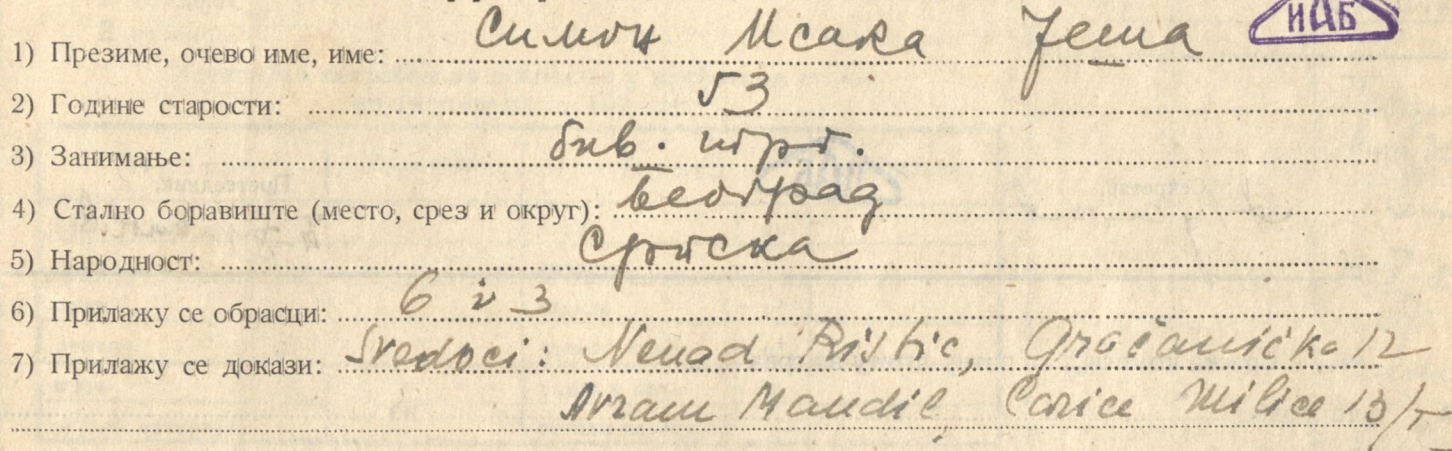 ИАБ
1) Презиме, очево име, име: Симон Исака Јеша
2) Године старости: 53
3) Занимање: бив. трг.
4) Стално боравиште (место, срез и округ): Београд
5) Народност: Српска
6) Прилажу се обрасци: 6 и 3
7) Прилажу се докази: Svedoci: Nenad Ristic, Gračanička 12
Avram Mandil, Carice Milice 13/I